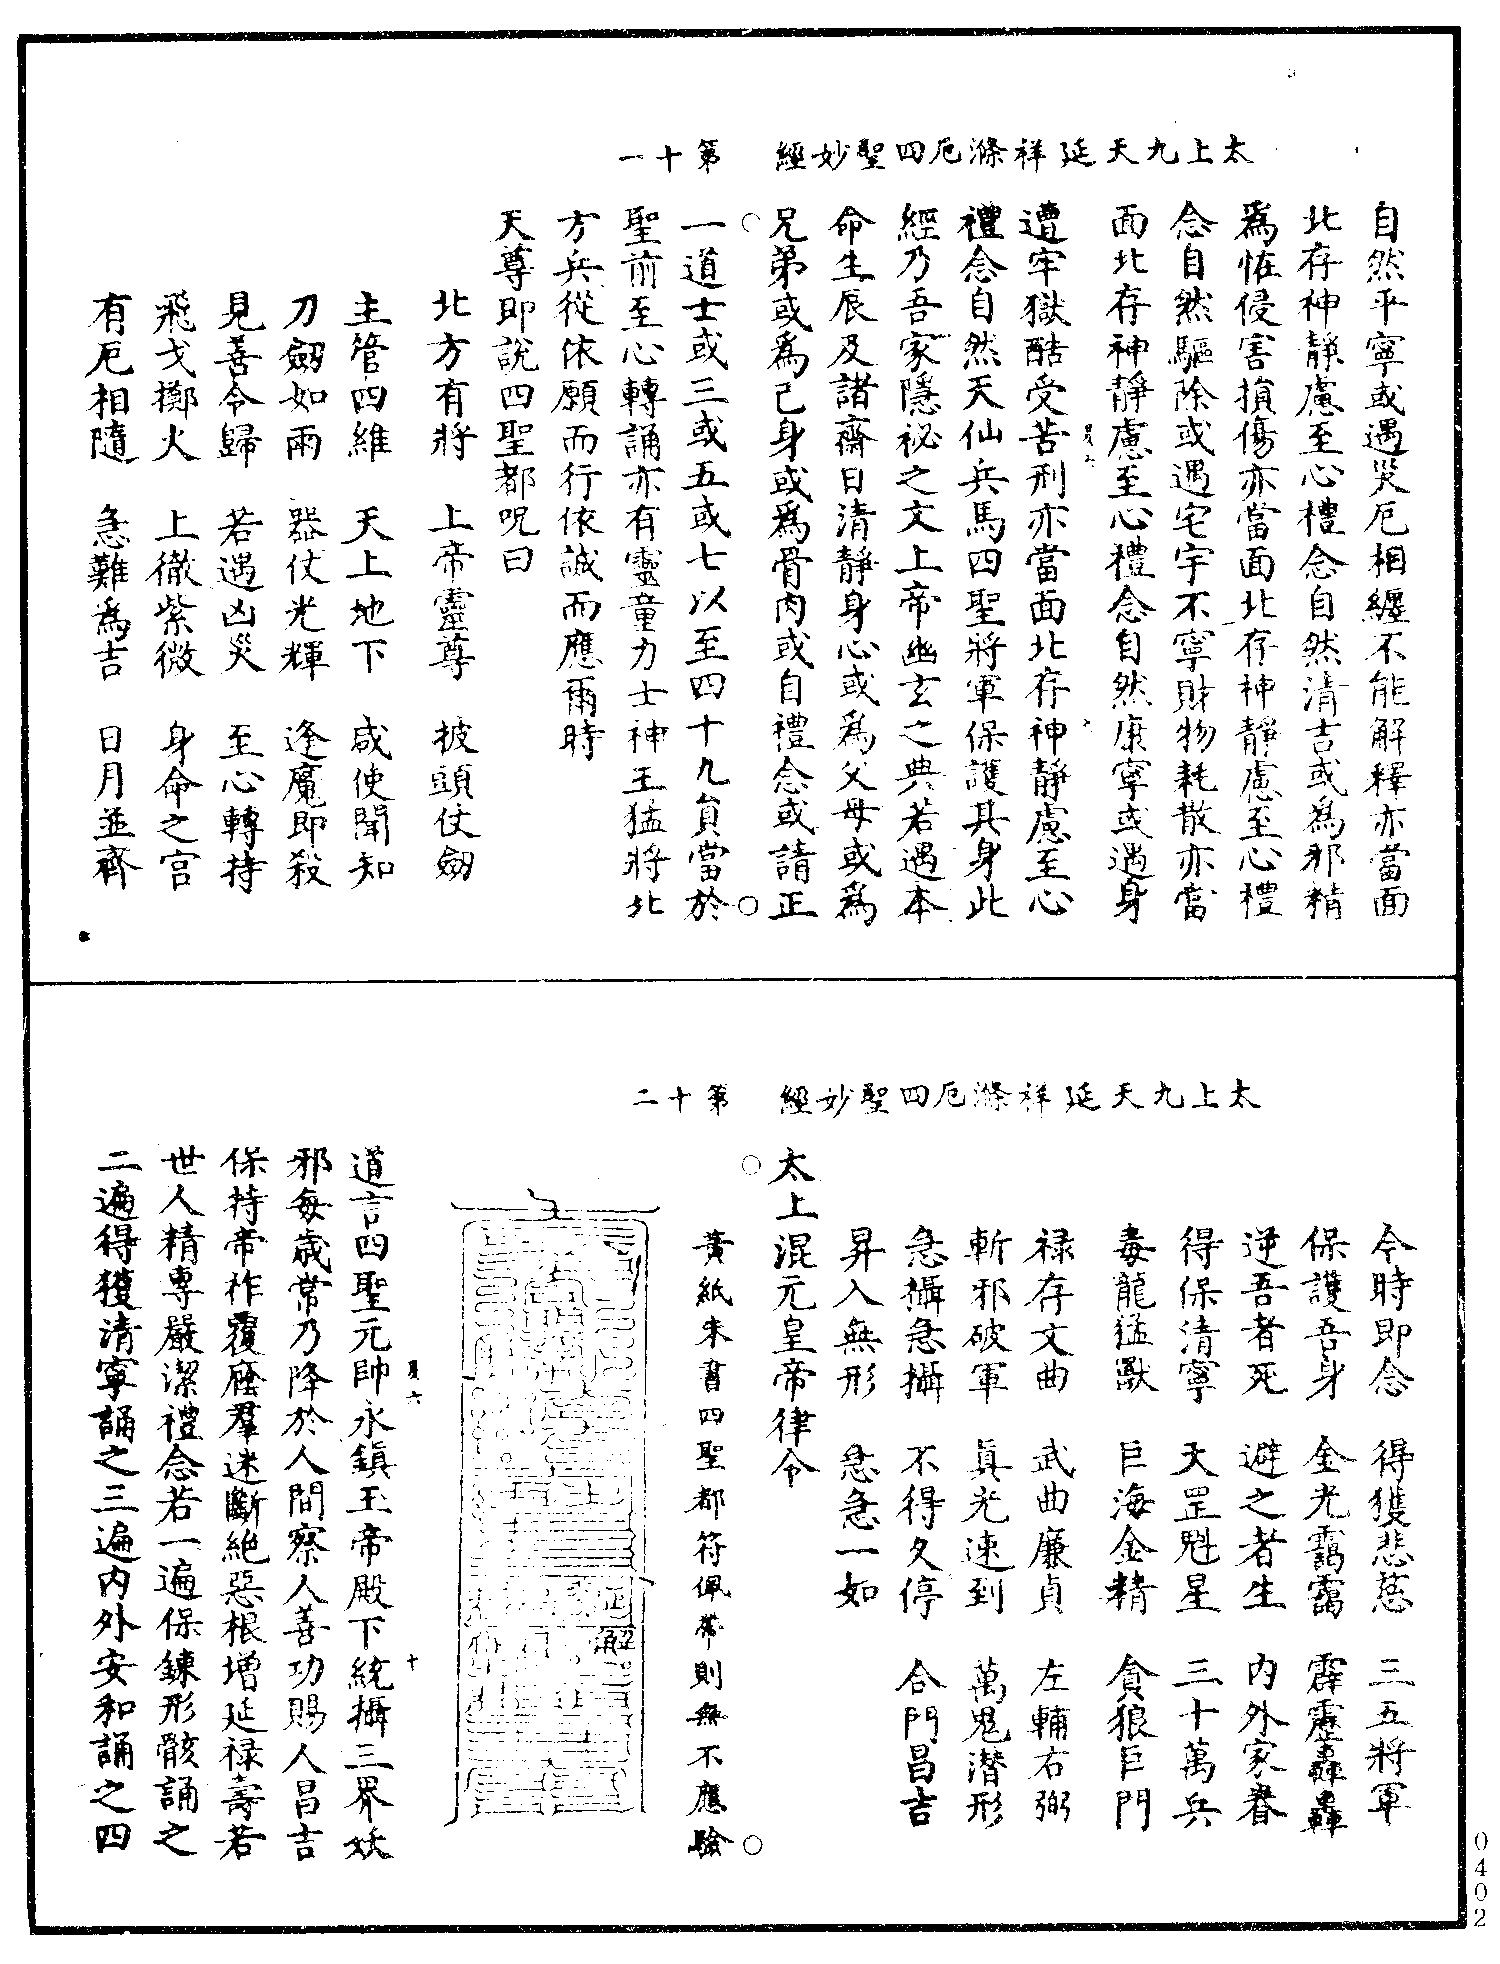 太上九天延祥滌厄四聖妙經 第十一
自然平寧或遇災厄相纏不能解釋亦當面
北存神靜慮至心禮念自然清吉或為邪精
為恠侵害損傷亦當面北存神靜慮至心禮
念自然驅除或遇宅宇不寧財物耗散亦當
面北存神靜慮至心禮念自然康寧或遇身
遭牢獄酷受苦刑亦當面北存神靜慮至心
禮念自然天仙兵馬四聖將軍保護其身此
經乃吾家隱祕之文上帝幽玄之典若遇本
命生辰及諸齋日清靜身心或為父母或為
兄弟或為己身或為骨肉或自禮念或請正
一道士或三或五或七以至四十九員當於
聖前至心轉誦亦有靈童力士神王猛將北
方兵從依願而行依誠而應爾時
天尊即說四聖都呪曰
北方有將 上帝靈尊 披頭仗劒
主管四維 天上地下 咸使聞知
刀劒如雨 器仗光輝 逢魔即殺
見善令歸 若遇凶災 至心轉持
飛戈擲火 上徹紫微 身命之宮
有厄相隨 急難為吉 日月並齊
太上九天延祥滌厄四聖妙經 第十二
今時即念 得獲悲慈 三五將軍
保護吾身 金光靄靄 霹靂轟轟
逆吾者死 避之者生 內外家眷
得保清寧 天罡魁星 三十萬兵
毒龍猛獸 巨海金精 貪狼巨門
祿存文曲 武曲廉貞 左輔右弼
斬邪破軍 真光速到 萬鬼潛形
急攝急攝 不得久停 合門昌吉
昇入無形 急急一如
太上混元皇帝律令
黃紙朱書四聖都符佩帶則無不應驗
道言四聖元帥永鎮玉帝殿下統攝三界妖
邪每歲常乃降於人間察人善功賜人昌吉
保持帝祚覆廕羣迷斷絕惡根增延祿壽若
世人精專嚴潔禮念若一遍保鍊形骸誦之
二遍得獲清寧誦之三遍內外安和誦之四
0402